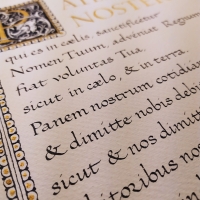 NOSTER
qui es in cœlis sanctificetur
Nomen Tuum, adveniat Regnum
fiat voluntas Tua,
sicut in cœlo, & in terra.
Panem nostrum cotidian
& dimitte nobis debi
sicut & nos dimitti
ebitoribus nos